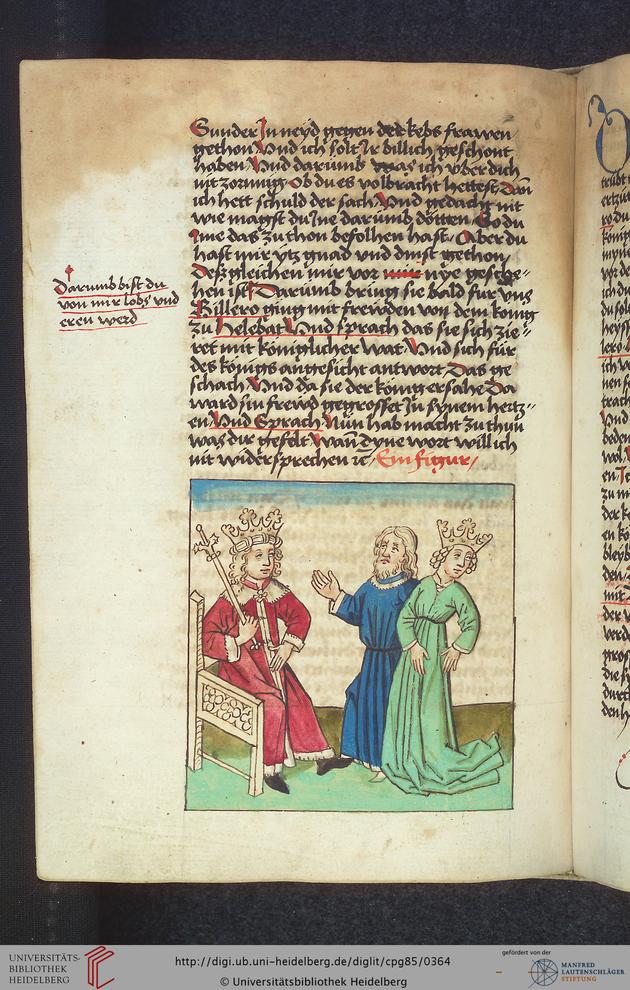 Sunder In neyd gegen der kebs frawen
gethon Vnd ich solt Ir billich geschont
haben Vnd darumb was ich vber dich
nit zornnig Ob du es volbracht hettest Dan
ich hett schuld der sach Vnd gedacht nit
wie magst du Ine darumb dötten So du
Ime das zu thon befolhen hast Aber du
hast mir ytz gnad vnd dinst gethon
Deßgleichen mir vor nye gesche-
hen ist Darumb bring sie bald fur vns
Billero ging mit frewden von dem konig
zu Helebat Vnd sprach das sie sich zie-
ret mit königlicher wat Vnd sich für
des königs angesicht antwort Das ge
schach Vnd da sie der könig ersahe Da
ward sin frewd gegrosset In synem hertz-
en Vnd Sprach Nün hab macht zu thun
was dir gefelt Wann dyne wort will ich
nit widersprechen rc Ein figur
Darumb bist du
von mir lobs vnd
eren werd
UNIVERSITÄTS-
BIBLIOTHEK
HEIDELBERG
http://digi.ub.uni-heidelberg.de/diglit/cpg85/0364
© Universitätsbibliothek Heidelberg
gefördert von der
MANFRED
LAUTENSCHLÄGER
STIFTUNG